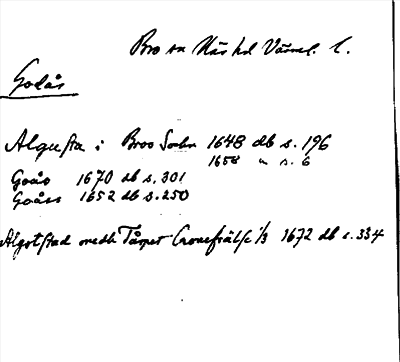 Bro sn Näs hd Värml. l.
Godås
Algusta i Broo Sochn 1648 db s. 196
1658 " s. 6
Goås 1670 db s. 301
Goåss 1652 db s. 250
Algotstad medh Tårpet Cronefrälse 1/3 1672 db s. 334